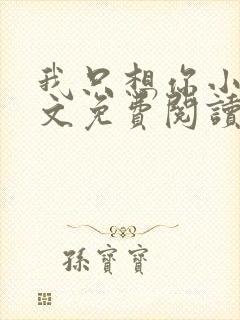 我只想你小
文免費閱讀
孫寶寶